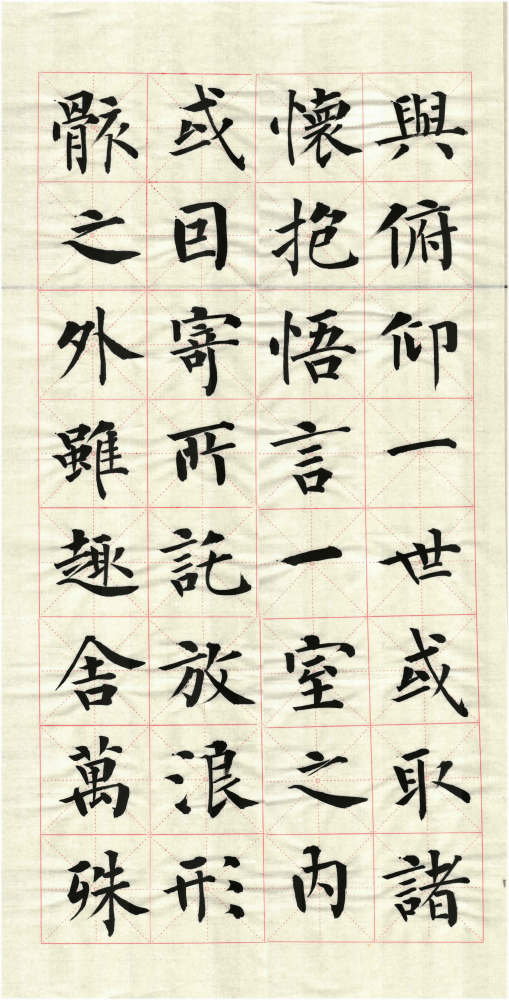 與俯仰一世或取諸
懷抱悟言一室之内
或回寄所託放浪形
骸之外雖趣舎萬殊